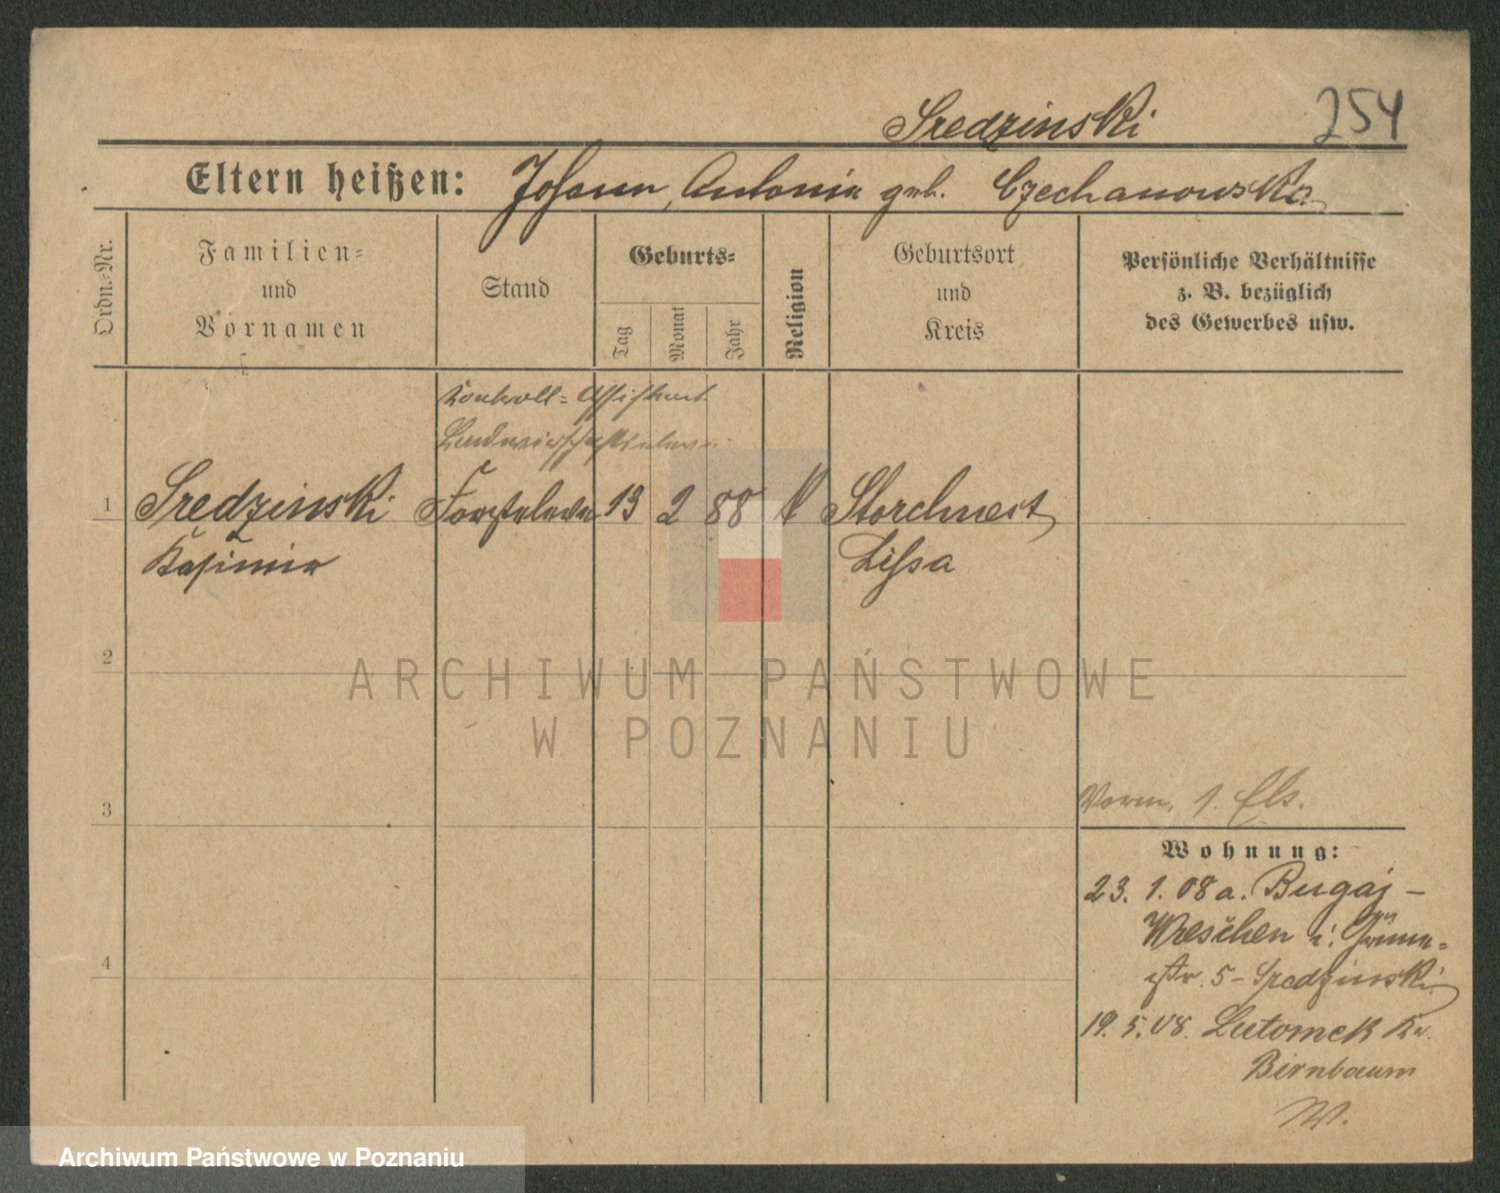 Sredzinski 254
Eltern heißen: Johann, Antonia geb. Czechanowska
Ordn.-Nr.
Familien-
und
Vornamen
Stand
Geburts-
Tag
Monat
Jahr
Religion
Geburtsort
und
Kreis
Persönliche Verhältnisse
z. B. bezüglich
des Gewerbes usw.
Kontroll-Assistent
1 Sredzinski Forsteleve 13 2 88 K Storchnest
Kasimir Lissa
2
ARCHIWUM PAŃSTWOWE
W POZNANIU
3
Vorm. 1.
Wohnung:
23. 1. 08 a. Bugaj -
Wreschen
str. 5 - Sredzinski
19. 5. 08. Lutomek Kr.
4
Birnbaum
W.
Archiwum Państwowe w Poznaniu